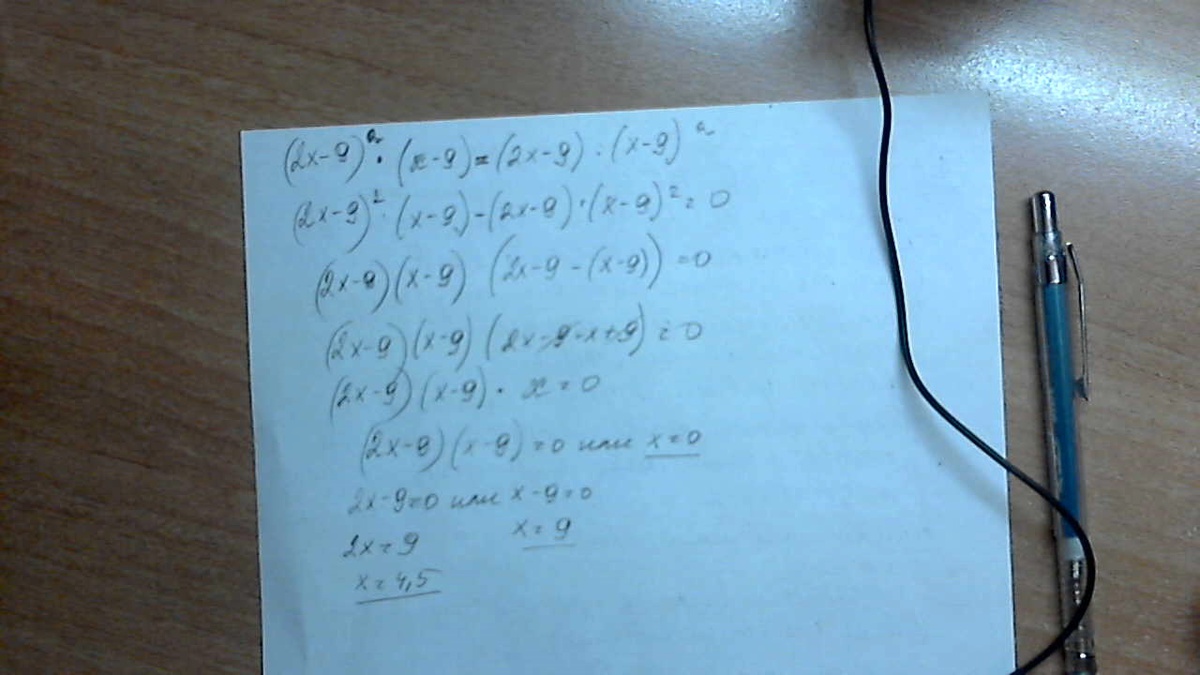 (2x-9)² · (x-9) = (2x-9) · (x-9)²
(2x-9)² · (x-9) - (2x-9) · (x-9)² = 0
(2x-9)(x-9) (2x-9-(x-9)) = 0
(2x-9)(x-9) (2x-9-x+9) = 0
(2x-9)(x-9) · x = 0
(2x-9)(x-9) = 0 или x = 0
2x-9=0 или x-9=0
2x = 9 x = 9
x = 4,5